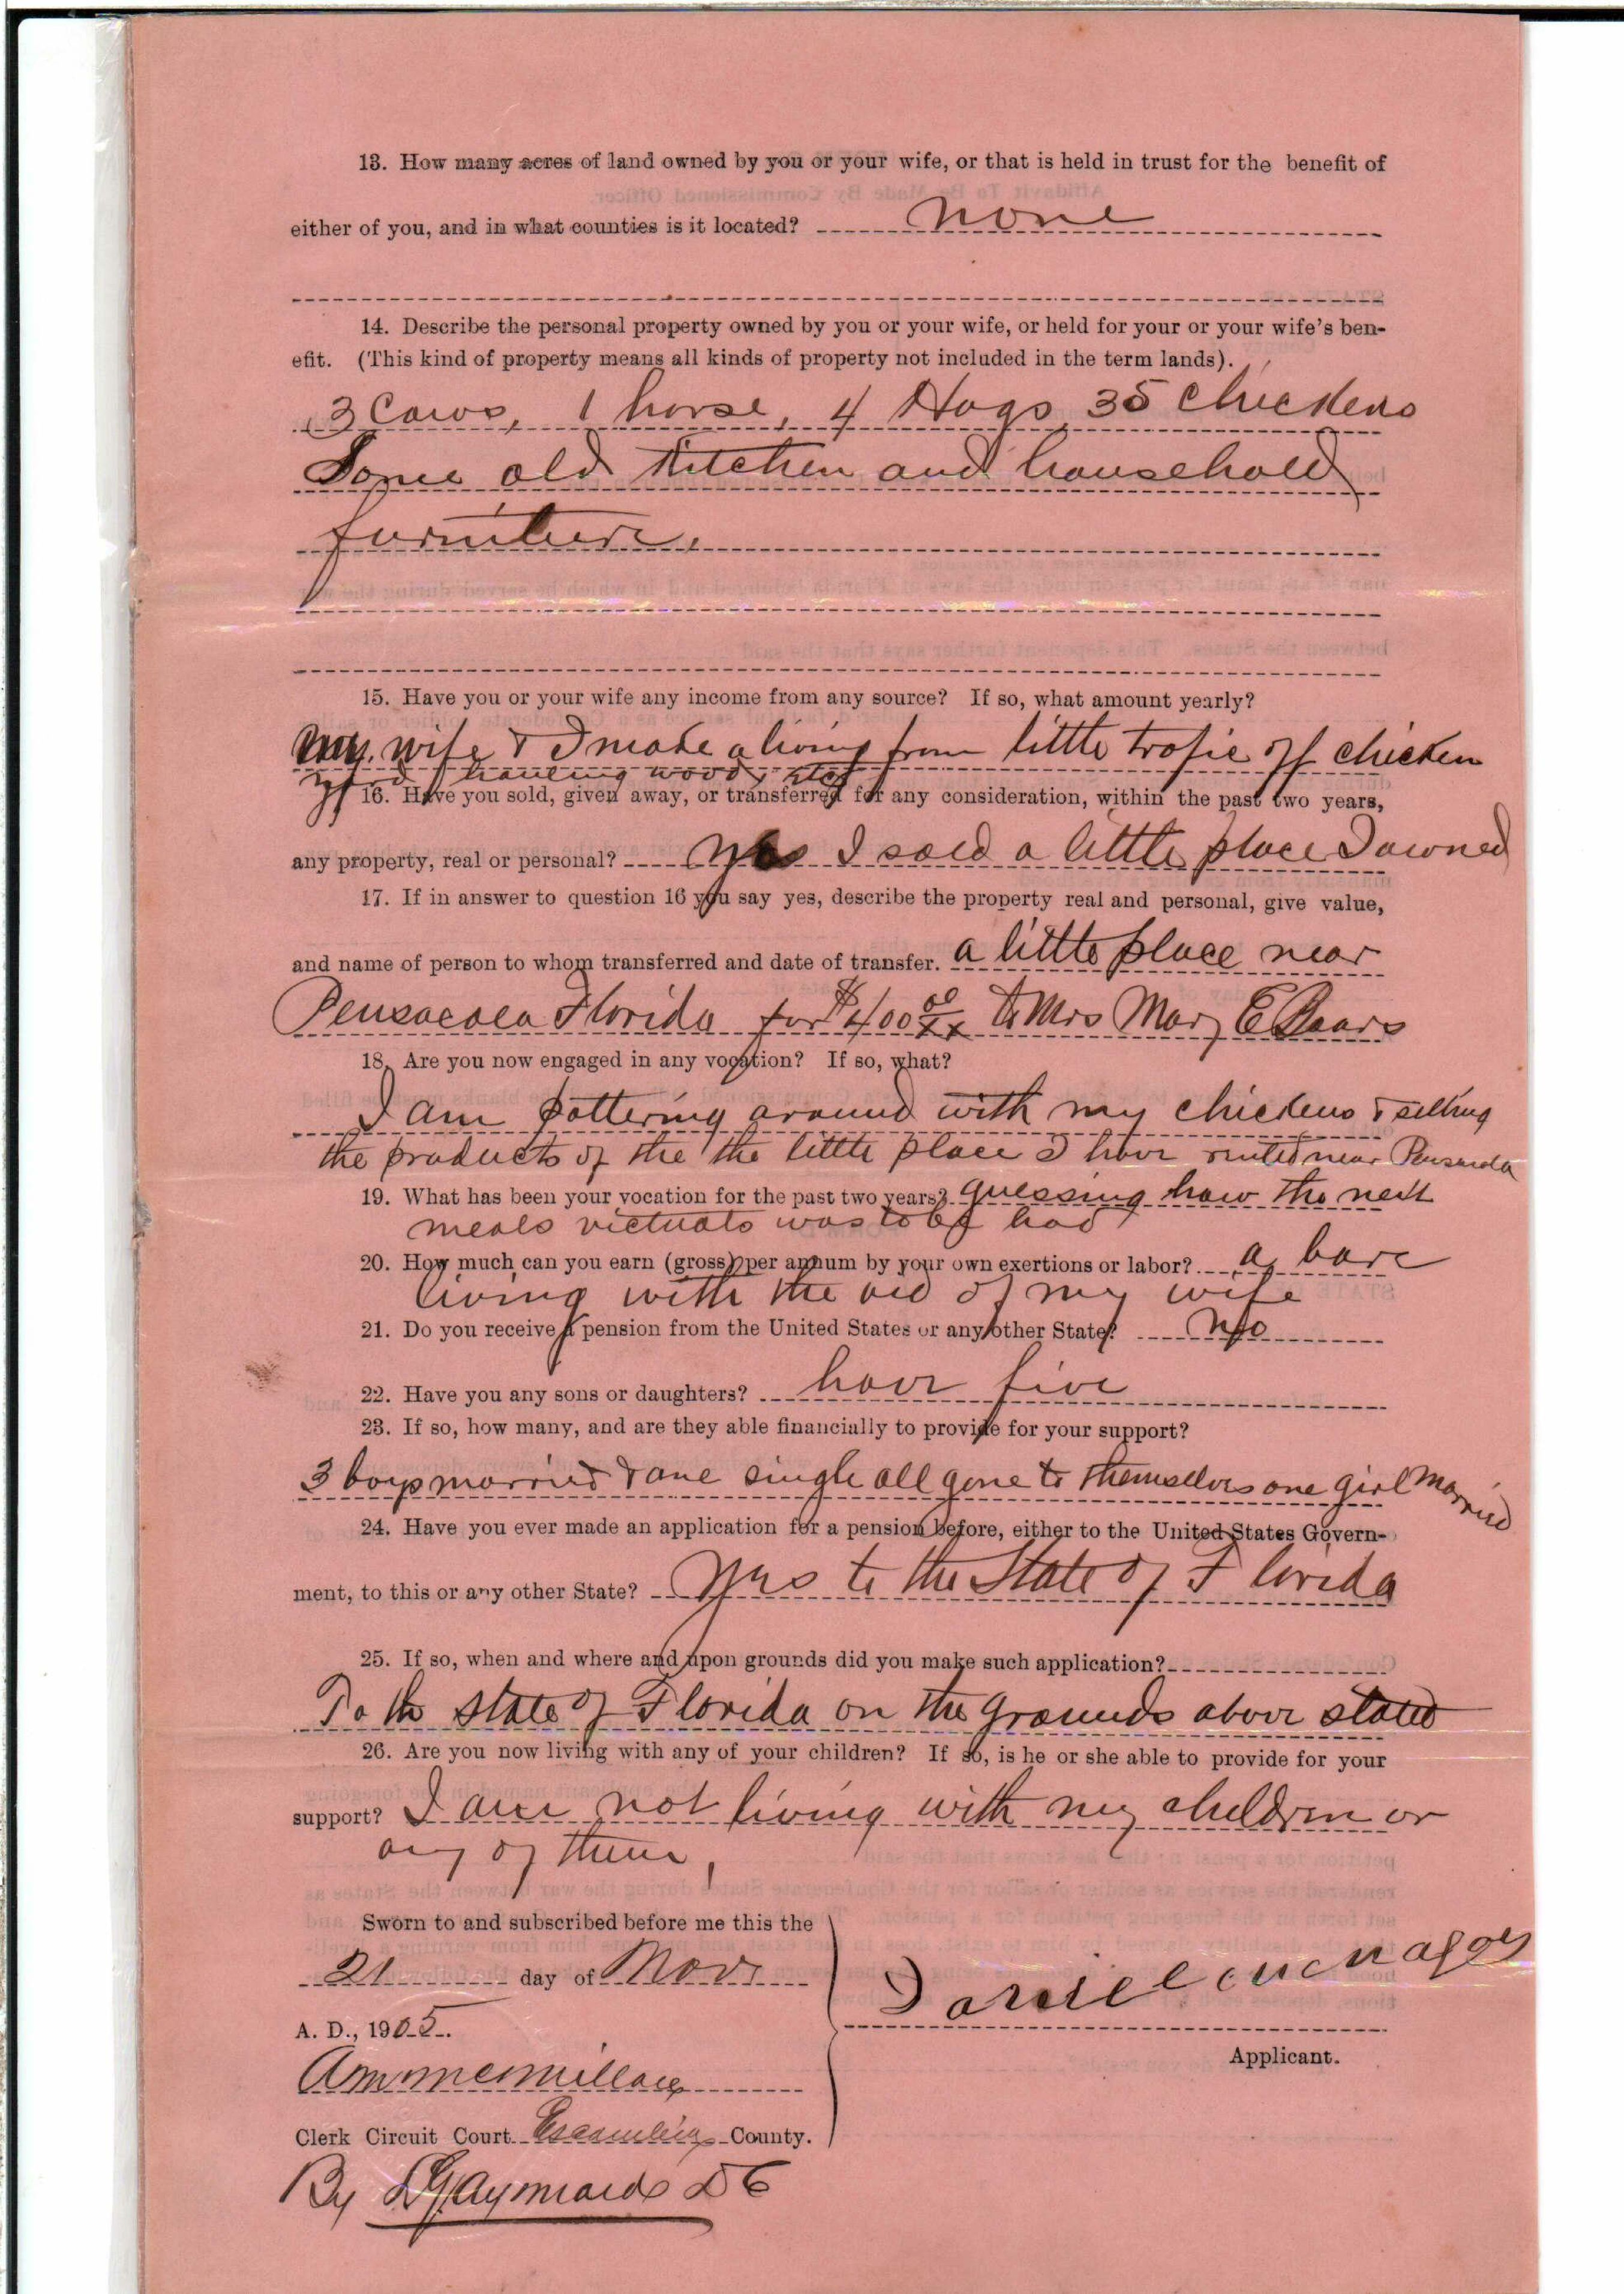 13. How many acres of land owned by you or your wife, or that is held in trust for the benefit of
either of you, and in what counties is it located? none
14. Describe the personal property owned by you or your wife, or held for your or your wife's ben-
efit. (This kind of property means all kinds of property not included in the term lands).
3 Cows, 1 horse, 4 Hogs 35 chickens
Some old Kitchen and household
furniture,
15. Have you or your wife any income from any source? If so, what amount yearly?
My wife & I make a living from little trafic off chicken
hauling wood, etc
16. Have you sold, given away, or transferred for any consideration, within the past two years,
any property, real or personal? Yes I sold a little place I owned
17. If in answer to question 16 you say yes, describe the property real and personal, give value,
and name of person to whom transferred and date of transfer. a little place near
Pensacola Florida for $400 00/xx to Mrs Mary E
18. Are you now engaged in any vocation? If so, what?
I am pottering around with my chickens & selling
the products of the the little place I have rented near Pensacola
19. What has been your vocation for the past two years? guessing how the next
meals victuals was to be had
20. How much can you earn (gross) per annum by your own exertions or labor? a bare
living with the aid of my wife
21. Do you receive a pension from the United States or any other State? No
22. Have you any sons or daughters? have five
23. If so, how many, and are they able financially to provide for your support?
3 boys married & one single all gone to themselves one girl married
24. Have you ever made an application for a pension before, either to the United States Govern-
ment, to this or any other State? Yes to the State of Florida
25. If so, when and where and upon grounds did you make such application?
To the state of Florida on the grounds above stated
26. Are you now living with any of your children? If so, is he or she able to provide for your
support? I am not living with my children or
any of them,
Sworn to and subscribed before me this the
21 day of Nov
A. D., 1905.
Daniel
Applicant.
A M McMillan
Clerk Circuit Court Escambia County.
By D C